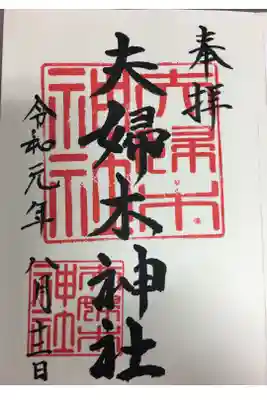 奉拝
夫婦木神社
令和元年 八月 日
夫婦木
神社
夫婦木
神社